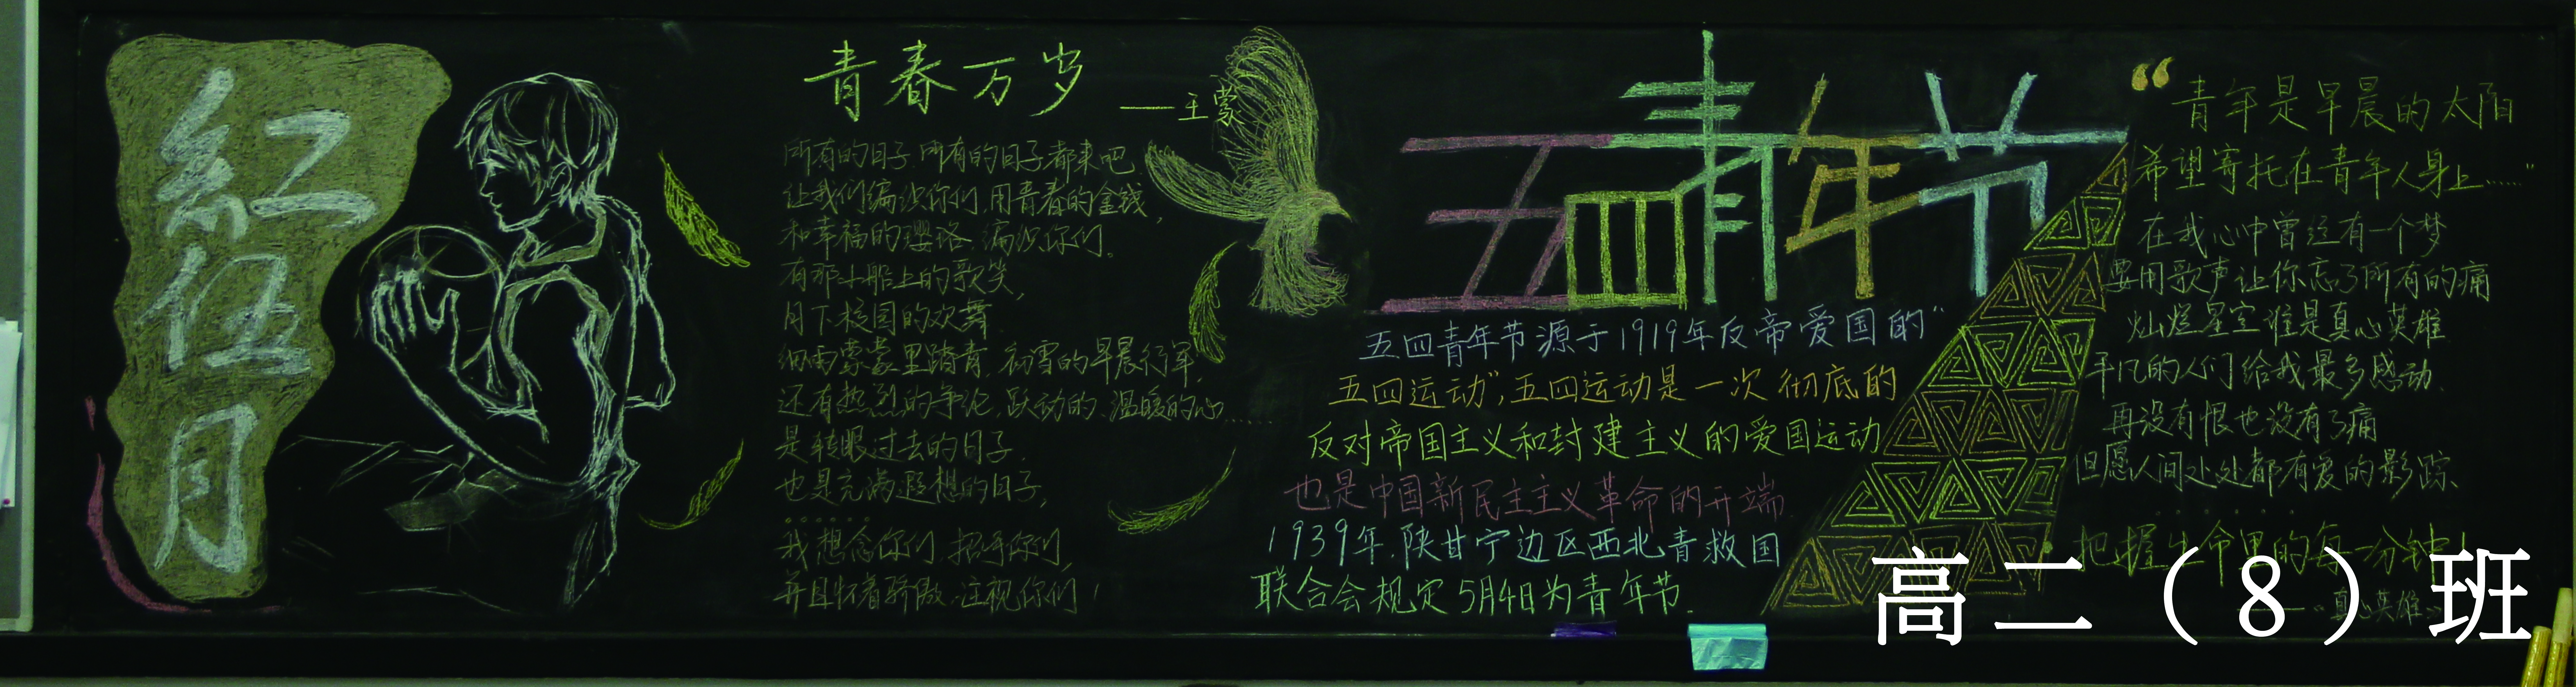 紅伍月
青春万岁
——王蒙
所有的日子，所有的日子都来吧
让我们编织你们，用青春的金钱，
和幸福的璎珞，编织你们。
有那小船上的歌笑，
月下校园的欢舞
细雨蒙蒙里踏青，初雪的早晨行军，
还有热烈的争论，跃动的、温暖的心……
是转眼过去的日子，
也是充满遐想的日子，
……
我想念你们，招呼你们，
并且怀着骄傲，注视你们！
五四青年节
五四青年节源于1919年反帝爱国的“
五四运动”，五四运动是一次彻底的
反对帝国主义和封建主义的爱国运动
也是中国新民主主义革命的开端.
1939年，陕甘宁边区西北青救国
联合会规定5月4日为青年节.
“青年是早晨的太阳
希望寄托在青年人身上……”
在我心中曾经有一个梦
要用歌声让你忘了所有的痛
灿烂星空谁是真心英雄
平凡的人们给我最多感动、
再没有恨也没有了痛
但愿人间处处都有爱的影踪、
……
把握生命里的每一分钟！
——《真心英雄》
高二（8）班